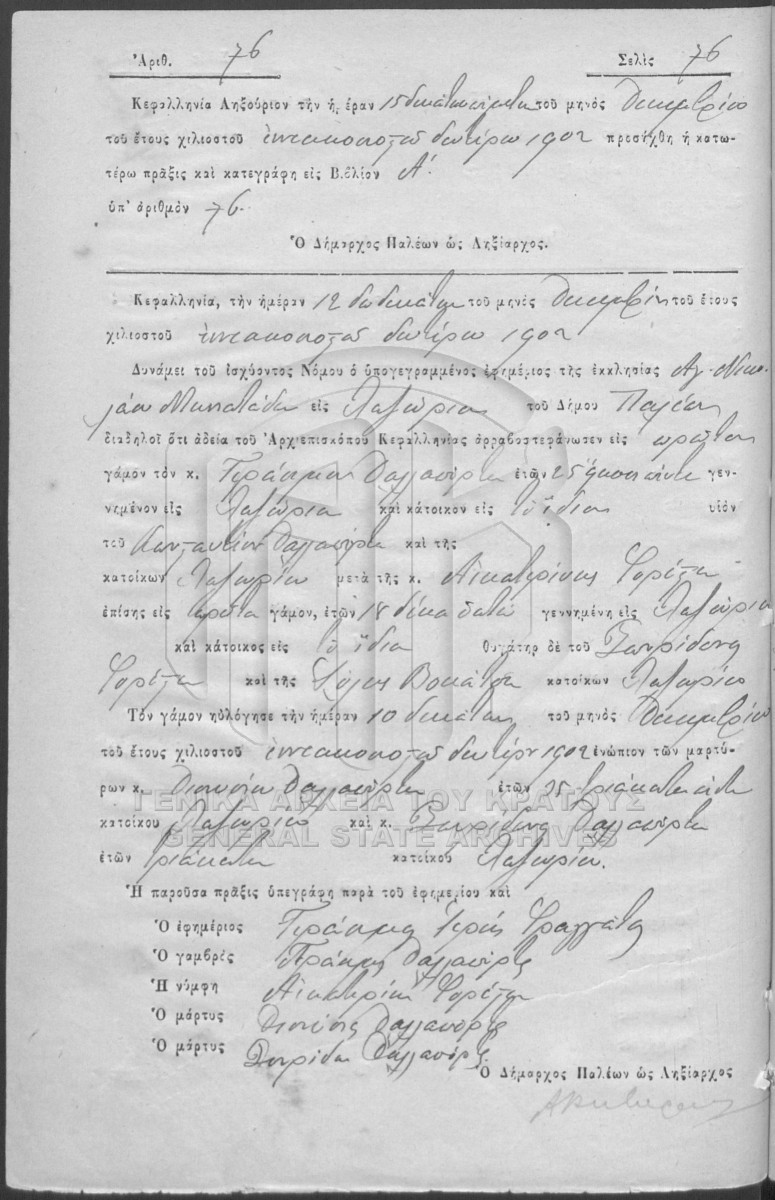 Ἀριθ. 76 Σελὶς 76
Κεφαλληνία Ληξούριον τὴν ἡμέραν 15 δεκάτην πέμπτην τοῦ μηνὸς Δεκεμβρίου
τοῦ ἔτους χιλιοστοῦ ἐννεακοσιοστοῦ δευτέρου 1902 προσήχθη ἡ κατω-
τέρω πρᾶξις καὶ κατεγράφη εἰς Βιβλίον Α΄.
ὑπ' ἀριθμὸν 76.
Ὁ Δήμαρχος Παλέων ὡς Ληξίαρχος.
Κεφαλληνία, τὴν ἡμέραν 12 δωδεκάτην τοῦ μηνὸς Δεκεμβρίου τοῦ ἔτους
χιλιοστοῦ ἐννεακοσιοστοῦ δευτέρου 1902
Δυνάμει τοῦ ἰσχύοντος Νόμου ὁ ὑπογεγραμμένος ἐφημέριος τῆς ἐκκλησίας Ἁγ. Νικο-
λάου εἰς Ληξούριον τοῦ Δήμου Παλέων
διαδηλοῖ ὅτι ἀδεία τοῦ Ἀρχιεπισκόπου Κεφαλληνίας ἀρραβοστεφάνωσεν εἰς πρῶτον
γάμον τὸν κ. Γεράσιμον ἐτῶν 25 εἴκοσι πέντε γεν-
νημένον εἰς Ληξούριον καὶ κάτοικον εἰς τὸ ἴδιον υἱὸν
τοῦ Κωνσταντίνου καὶ τῆς
κατοίκων Ληξουρίου μετὰ τῆς κ. Αἰκατερίνης
ἐπίσης εἰς πρῶτον γάμον, ἐτῶν 18 δέκα ὀκτώ γεννημένη εἰς Ληξούριον
καὶ κάτοικος εἰς τὸ ἴδιον θυγάτηρ δὲ τοῦ Σπυρίδωνος
καὶ τῆς κατοίκων Ληξουρίου
Τὸν γάμον ηὐλόγησε τὴν ἡμέραν 10 δεκάτην τοῦ μηνὸς Δεκεμβρίου
τοῦ ἔτους χιλιοστοῦ ἐννεακοσιοστοῦ δευτέρου 1902 ἐνώπιον τῶν μαρτύ-
ρων κ. Διονυσίου ἐτῶν 35 τριάκοντα πέντε
κατοίκου Ληξουρίου καὶ κ. Σπυρίδωνος
ἐτῶν τριάκοντα κατοίκου Ληξουρίου.
ΓΕΝΙΚΑ ΑΡΧΕΙΑ ΤΟΥ ΚΡΑΤΟΥΣ
GENERAL STATE ARCHIVES
Ἡ παροῦσα πρᾶξις ὑπεγράφη παρὰ τοῦ ἐφημερίου καὶ
Ὁ ἐφημέριος Γεράσιμος Ἱερεὺς
Ὁ γαμβρὸς Γεράσιμος
Ἡ νύμφη Αἰκατερίνη
Ὁ μάρτυς Διονύσιος
Ὁ μάρτυς Σπυρίδων
Ὁ Δήμαρχος Παλέων ὡς Ληξίαρχος